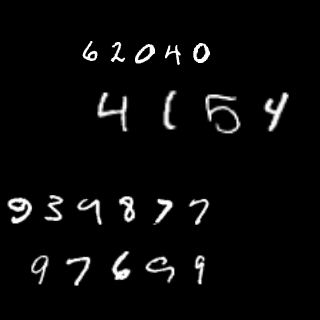 62040
4154
939877
97699